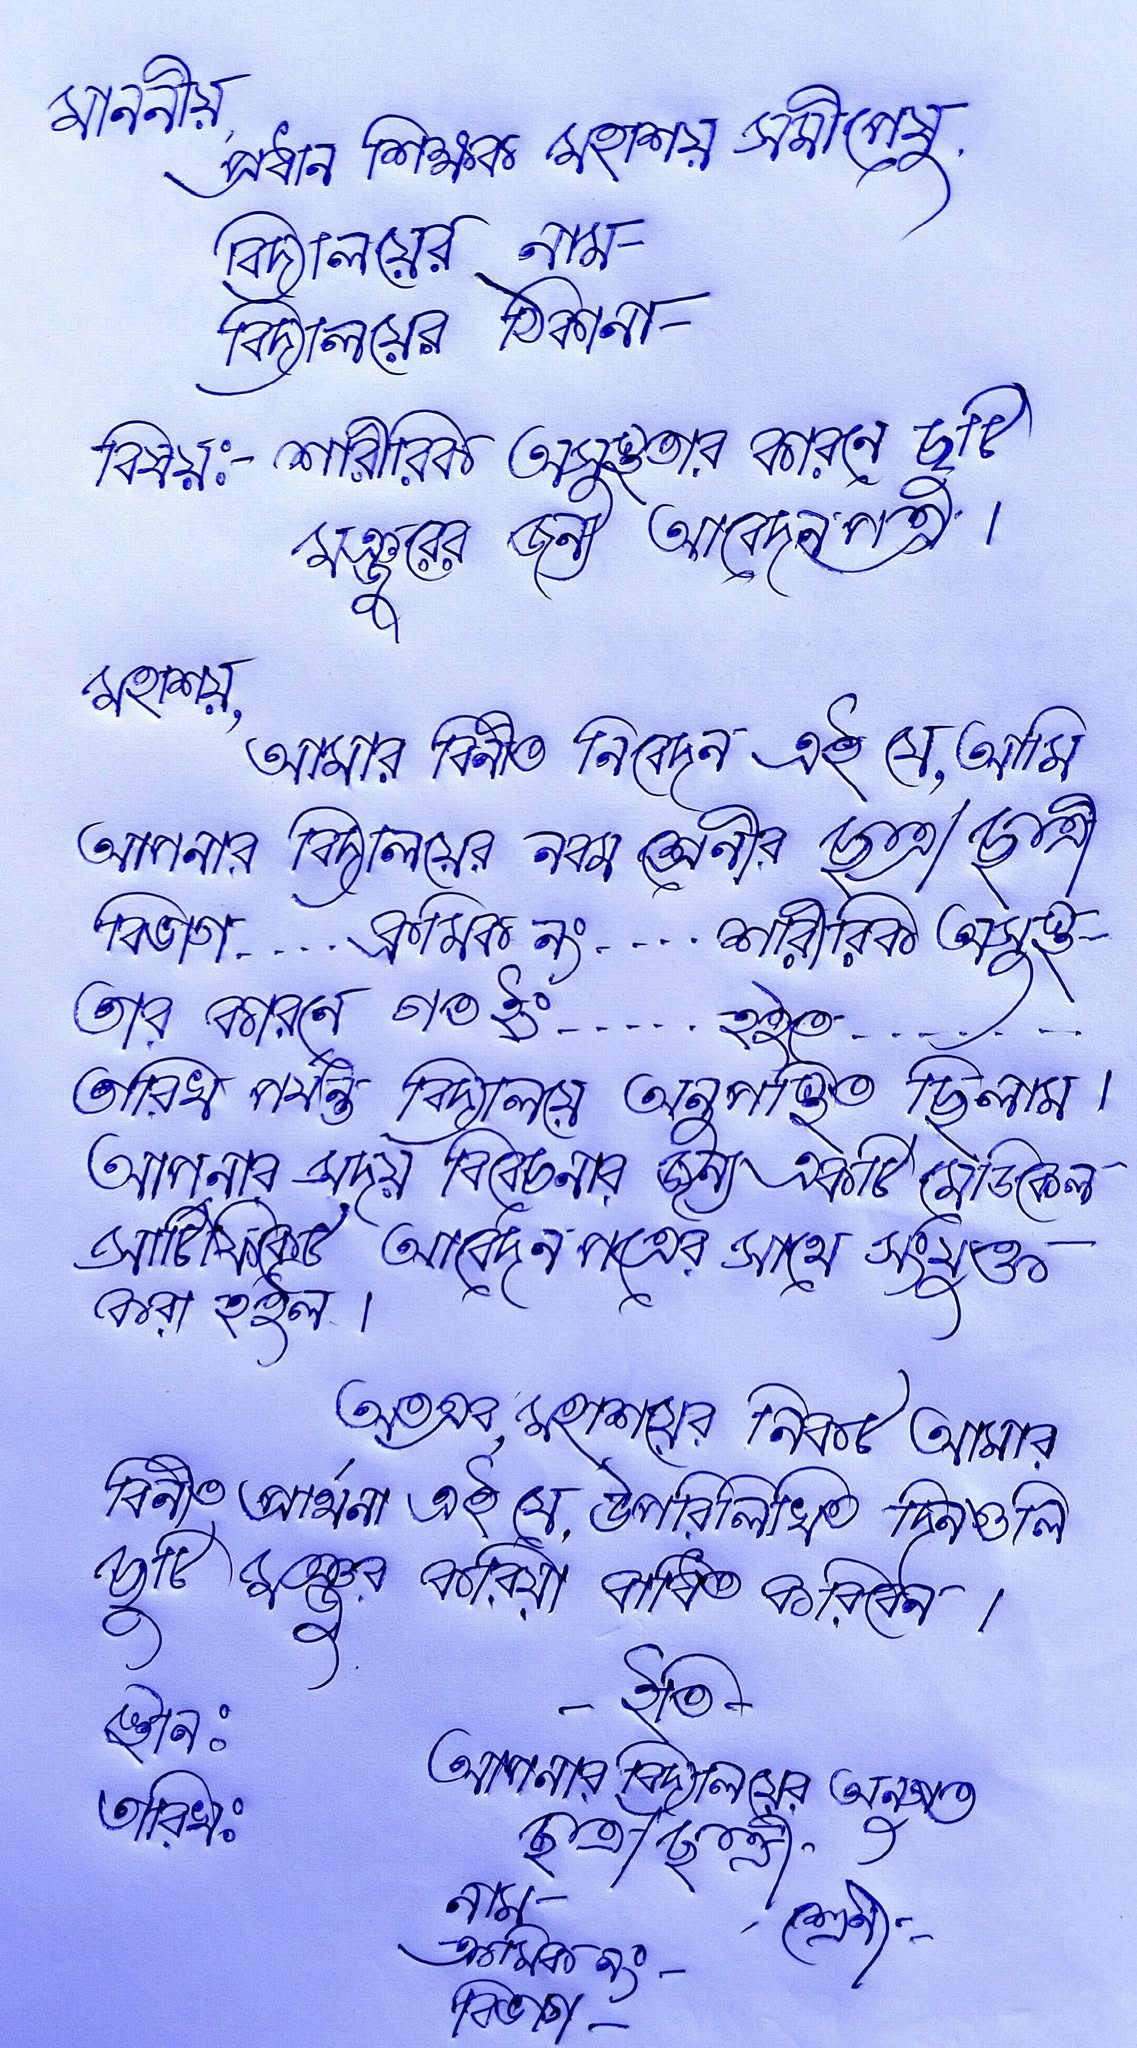 মাননীয়,
প্রধান শিক্ষক মহাশয় সমীপেষু,
বিদ্যালয়ের নাম-
বিদ্যালয়ের ঠিকানা-
বিষয়ঃ- শারীরিক অসুস্থতার কারনে ছুটি
মঞ্জুরের জন্য আবেদন পত্র ।
মহাশয়,
আমার বিনীত নিবেদন এই যে, আমি
আপনার বিদ্যালয়ের নবম শ্রেনীর ছাত্র/ ছাত্রী
বিভাগ.... ক্রমিক নং..... শারীরিক অসুস্থ-
তার কারনে গত ইং...... হইতে........
তারিখ পর্যন্ত বিদ্যালয়ে অনুপস্থিত ছিলাম ।
আপনার সদয় বিবেচনার জন্য একটি মেডিকেল
সার্টিফিকেট আবেদন পত্রের সাথে সংযুক্ত
করা হইল ।
অতএব, মহাশয়ের নিকট আমার
বিনীত প্রার্থনা এই যে, উপরিলিখিত দিনগুলি
ছুটি মঞ্জুর করিয়া বাধিত করিবেন ।
- ইতি -
স্থান ঃ
আপনার বিদ্যালয়ের অনুগত
তারিখ ঃ
ছাত্র/ ছাত্রী-
নাম- শ্রেনী--
ক্রমিক নং-
বিভাগ-